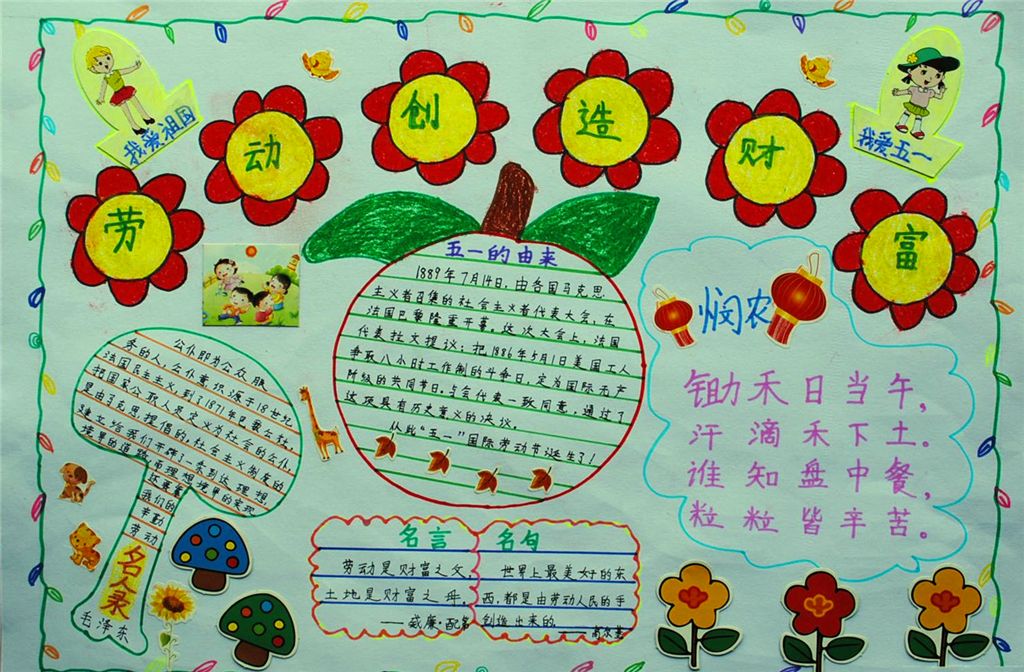 我爱祖国
我爱五一
劳动创造财富
五一的由来
1889年7月14日,由各国马克思
主义者召集的社会主义者代表大会,在
法国巴黎隆重开幕。这次大会上,法国
代表拉文提议:把1886年5月1日美国工人
争取八小时工作制的斗争日,定为国际无产
阶级的共同节日。与会代表一致同意,通过了
这项具有历史意义的决议。
从此"五一"国际劳动节诞生了!
悯农
锄禾日当午,
汗滴禾下土。
谁知盘中餐,
粒粒皆辛苦。
公仆即为公众服
务的人。公仆意识源于18世纪
法国民主主义,到了1871年巴黎公社,
把国家公职人员定义为社会的公仆,
是由马克思提倡的。社会主义制度的
建立给我们开辟了一条到达理想
境界的道路,而理想境界的实现
还要靠
我们的
辛勤
劳动
名人录
毛泽东
名言
劳动是财富之父,
土地是财富之母。
——威廉·配第
名句
世界上最美好的东
西,都是由劳动人民的手
创造出来的。
——高尔基